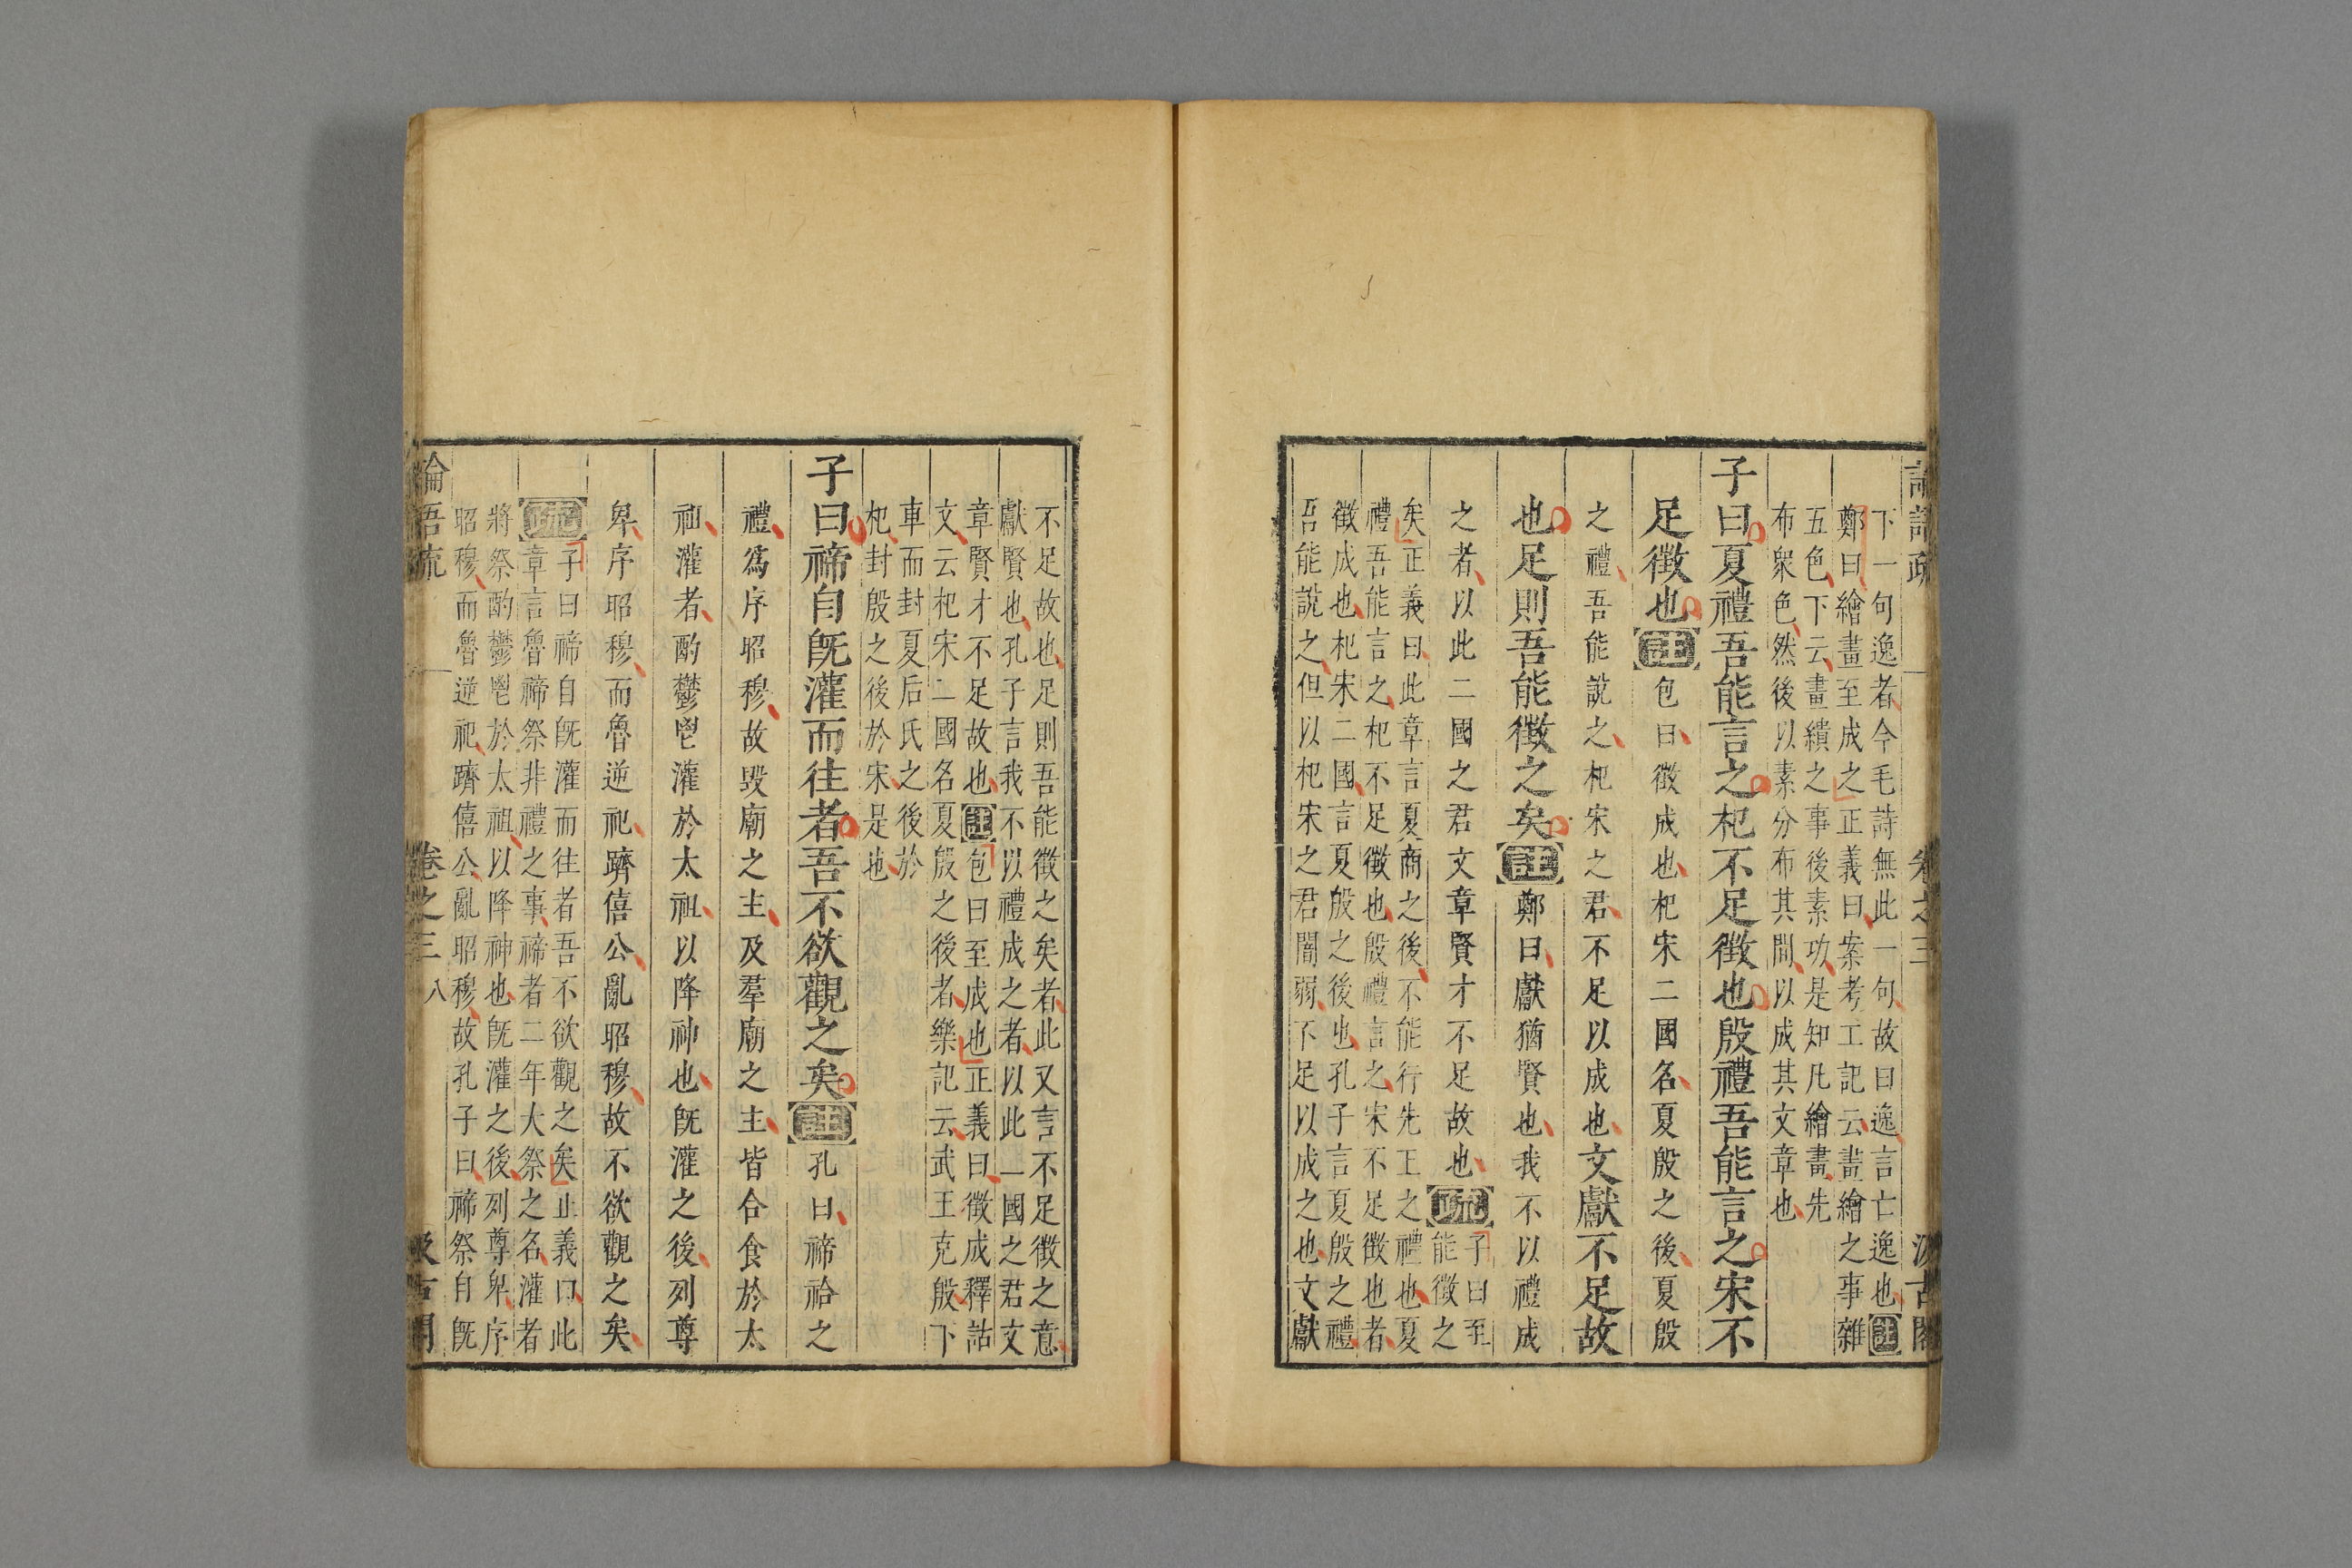 論語疏 卷之三 汲古閣
下一句逸者今毛詩無此一句故曰逸言亡逸也註
鄭曰繪畫至成之正義曰案考工記云畫繪之事雜
五色下云畫繢之事後素功是知凡繪畫先
布衆色然後以素分布其間以成其文章也
子曰夏禮吾能言之杞不足徵也殷禮吾能言之宋不
足徵也註包曰徵成也杞宋二國名夏殷之後夏殷
之禮吾能說之杞宋之君不足以成也文獻不足故
也足則吾能徵之矣註鄭曰獻猶賢也我不以禮成
之者以此二國之君文章賢才不足故也疏
子曰至
能徵之
矣正義曰此章言夏商之後不能行先王之禮也夏
禮吾能言之杞不足徵也殷禮言之宋不足徵也者
徵成也杞宋二國言夏殷之後也孔子言夏殷之禮
吾能說之但以杞宋之君闇弱不足以成之也文獻
不足故也足則吾能徵之矣者此又言不足徵之意
獻賢也孔子言我不以禮成之者以此二國之君文
章賢才不足故也註包曰至成也正義曰徵成釋詁
文云杞宋二國名夏殷之後者樂記云武王克殷下
車而封夏后氏之後於
杞封殷之後於宋是也
子曰禘自既灌而往者吾不欲觀之矣註孔曰禘祫之
禮爲序昭穆故毀廟之主及羣廟之主皆合食於太
祖灌者酌鬱鬯灌於太祖以降神也既灌之後列尊
卑序昭穆而魯逆祀躋僖公亂昭穆故不欲觀之矣
疏
子曰禘自既灌而往者吾不欲觀之矣正義曰此
章言魯禘祭非禮之事禘者二年大祭之名灌者
將祭酌鬱鬯於太祖以降神也既灌之後列尊卑序
昭穆而魯逆祀躋僖公亂昭穆故孔子曰禘祭自既
論語疏 卷之三 八 汲古閣